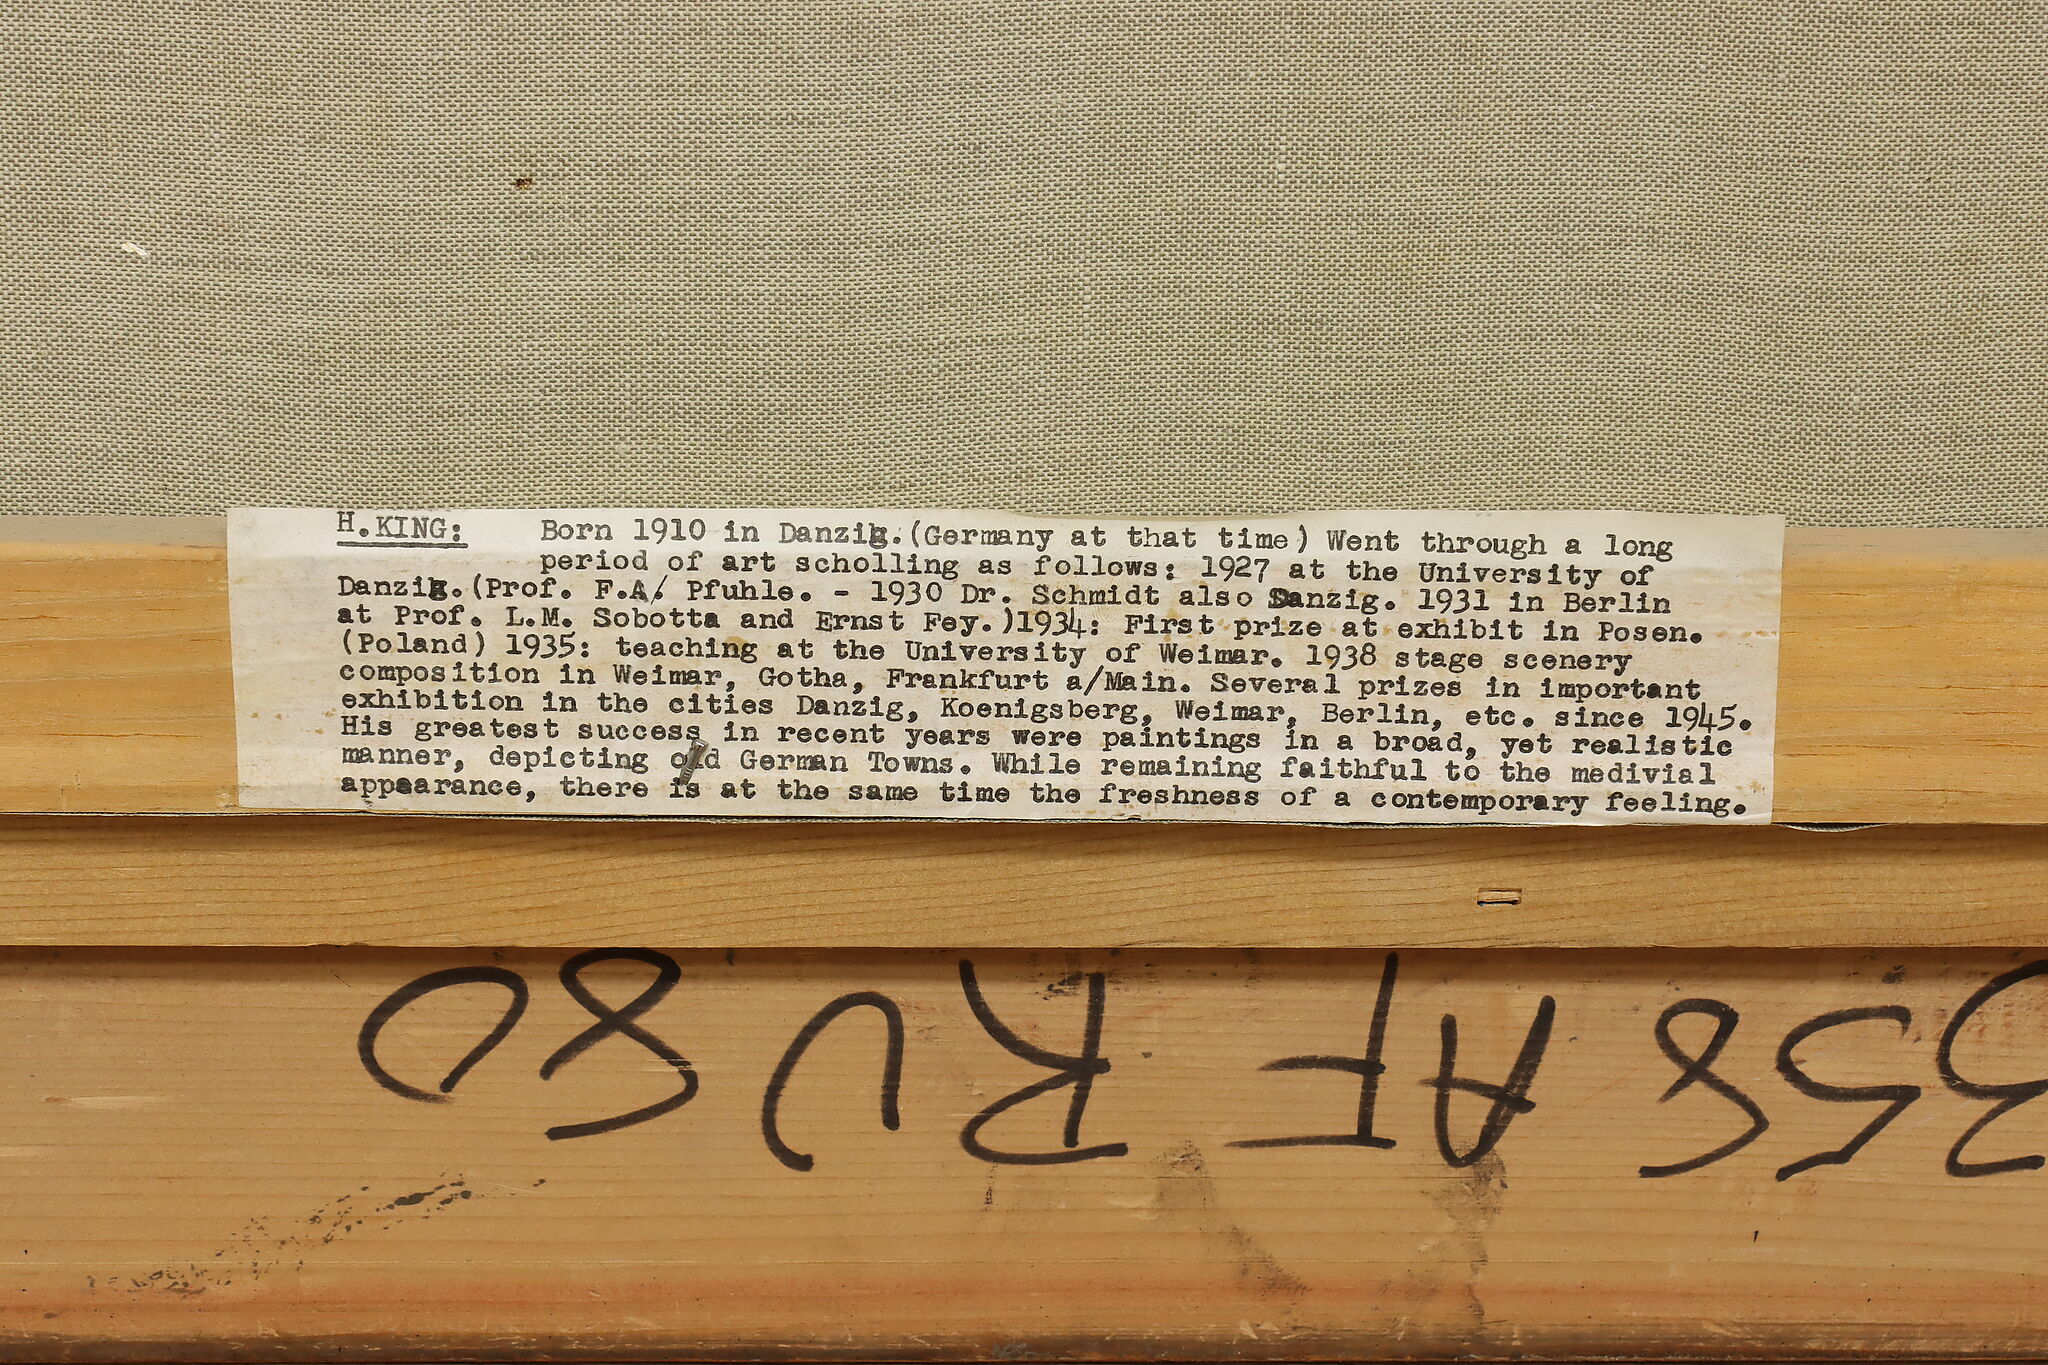 H.KING: Born 1910 in Danzig.(Germany at that time) Went through a long
period of art scholling as follows: 1927 at the University of
Danzig.(Prof. F.A. Pfuhle. - 1930 Dr. Schmidt also Danzig. 1931 in Berlin
at Prof. L.M. Sobotta and Ernst Fey.)1934: First prize at exhibit in Posen.
(Poland) 1935: teaching at the University of Weimar. 1938 stage scenery
composition in Weimar, Gotha, Frankfurt a/Main. Several prizes in important
exhibition in the cities Danzig, Koenigsberg, Weimar, Berlin, etc. since 1945.
His greatest success in recent years were paintings in a broad, yet realistic
manner, depicting old German Towns. While remaining faithful to the medivial
appearance, there is at the same time the freshness of a contemporary feeling.
358 AF RU80